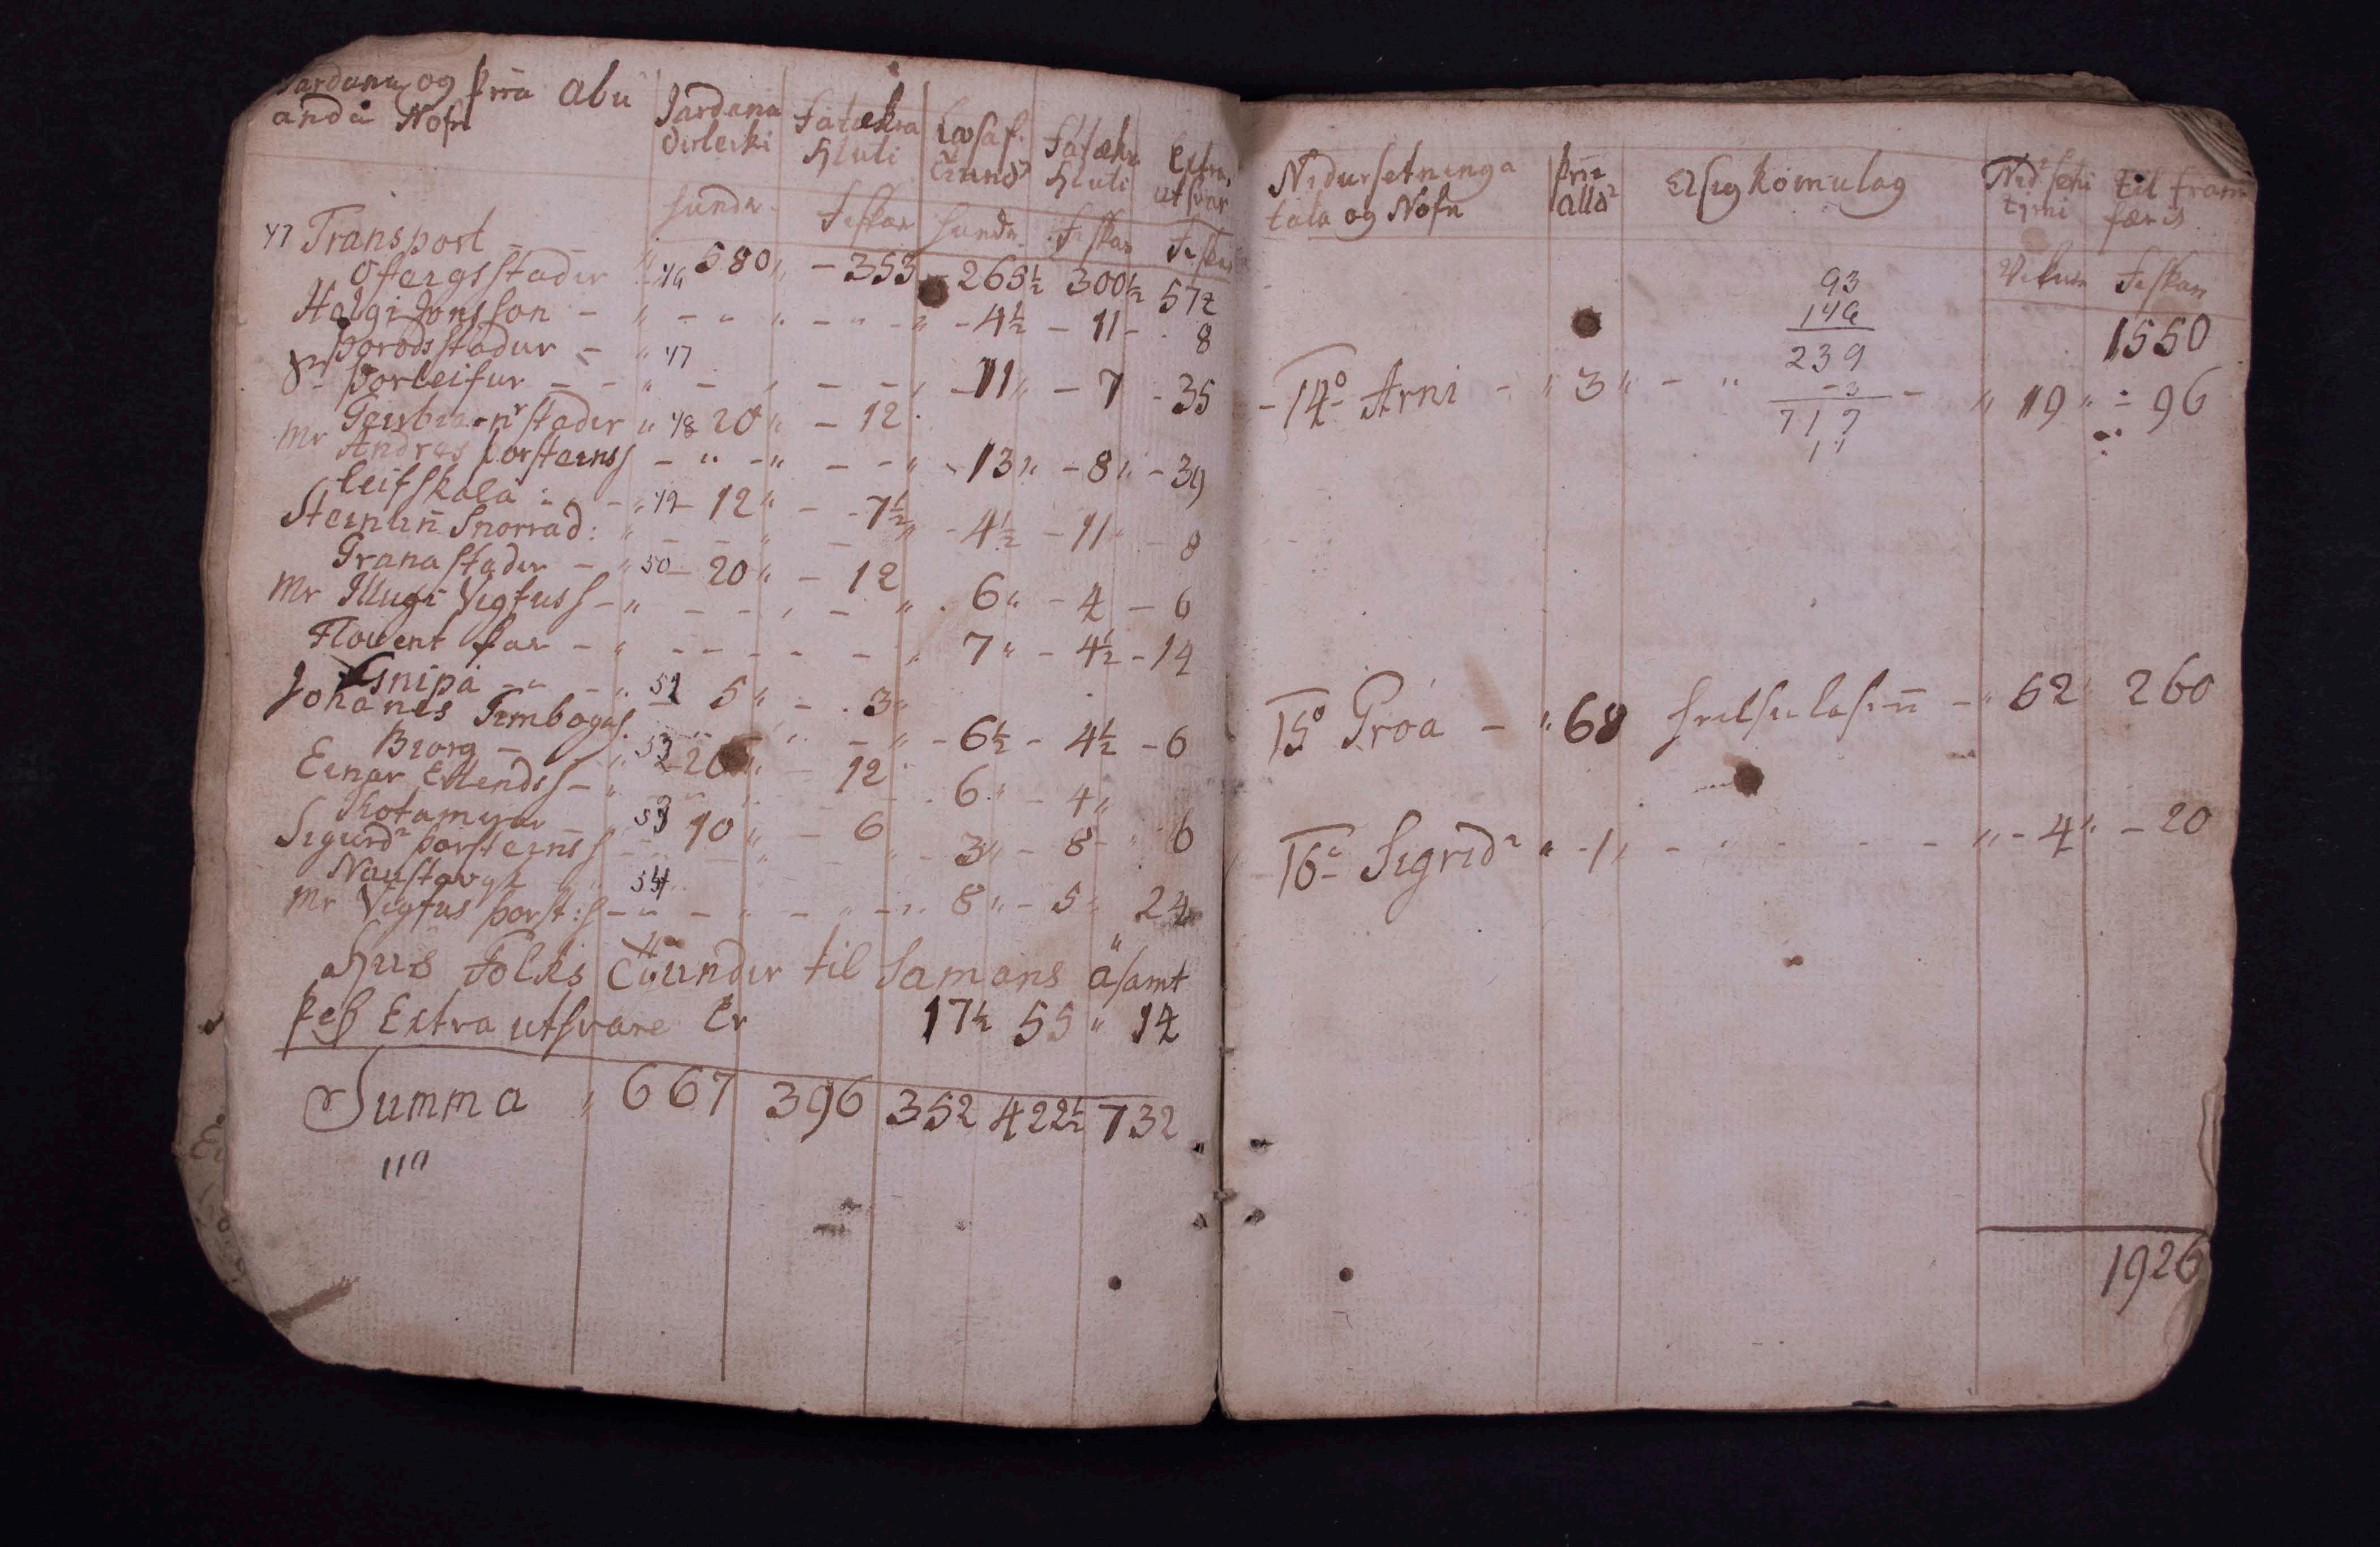 Jardana og þrra abu
anda Nofn
Jardana
dirleiki
Fatækra
Hluti
Lausaf.
Tiund
Fatækr
Hluti
Extra
utsvar
hundr. Fiskar hundr. Fiskar Fiskar
47 Transport
46 580 „ - 353 - 265½ 300½ 572
Ofeigsstader
Helgi Jonsson - „ - - „ - - „ - 4½ - 11 - 8
Þorodsstadur - „ 47
Sr Þorleifur - - „ - „ - - „ - 11 „ - 7 - 35
Geirbiarnrstader „ 48 20 „ - 12
Mr Andres Þorsteinss - „ - „ - - „ - 13 „ - 8 „ - 39
Leifskala - „ 49 - 12 „ - - 7½
Steinun Snorrad: „ - - „ - „ - 4½ - 11 - 8
Granastader - „ 50 - 20 „ - 12
Mr Illugi Vigfuss - „ - - „ - „ 6 „ - 4 - 6
Flovent þar - „ - - - - - „ 7 „ - 4½ - 14
Gnipa - „ - „ 51 5 „ - 3 „
Johanes Finbogas. „ - „ - 6½ - 4½ - 6
Biorg - „ 52 - 20 „ - 12
Einar Erlendss - „ 6 „ - 4 „
Kotamyrar 53 10 „ - 6
Sigurdr Þorsteinss - - „ - 3 „ - 8 - „ 6
Naustavyk „ 54
Mr Vigfus Þorst:s - „ - „ - „ - „ 8 „ - 5 „ 24
Hus Folks Tiunder til Samans asamt
þess Extra utsvare Er 17½ 55 „ 14
Summa „ 667 396 352 422½ 732
110
Nidursetninga
tala og Nofn
þrra
alldr
Afsigkomulag
Nidsetu
tymi
til fram
færis
Vikur Fiskar
93
146
239
- 3
717
11
1550
- 14o Arni - „ 3 „ - „ - „ 19 „ - 96
15o Groa - „ 68 heilsulasin - „ 52 „ 260
16o Sigridr „ - 1 „ - „ - - - „ - 4 „ - 20
1926